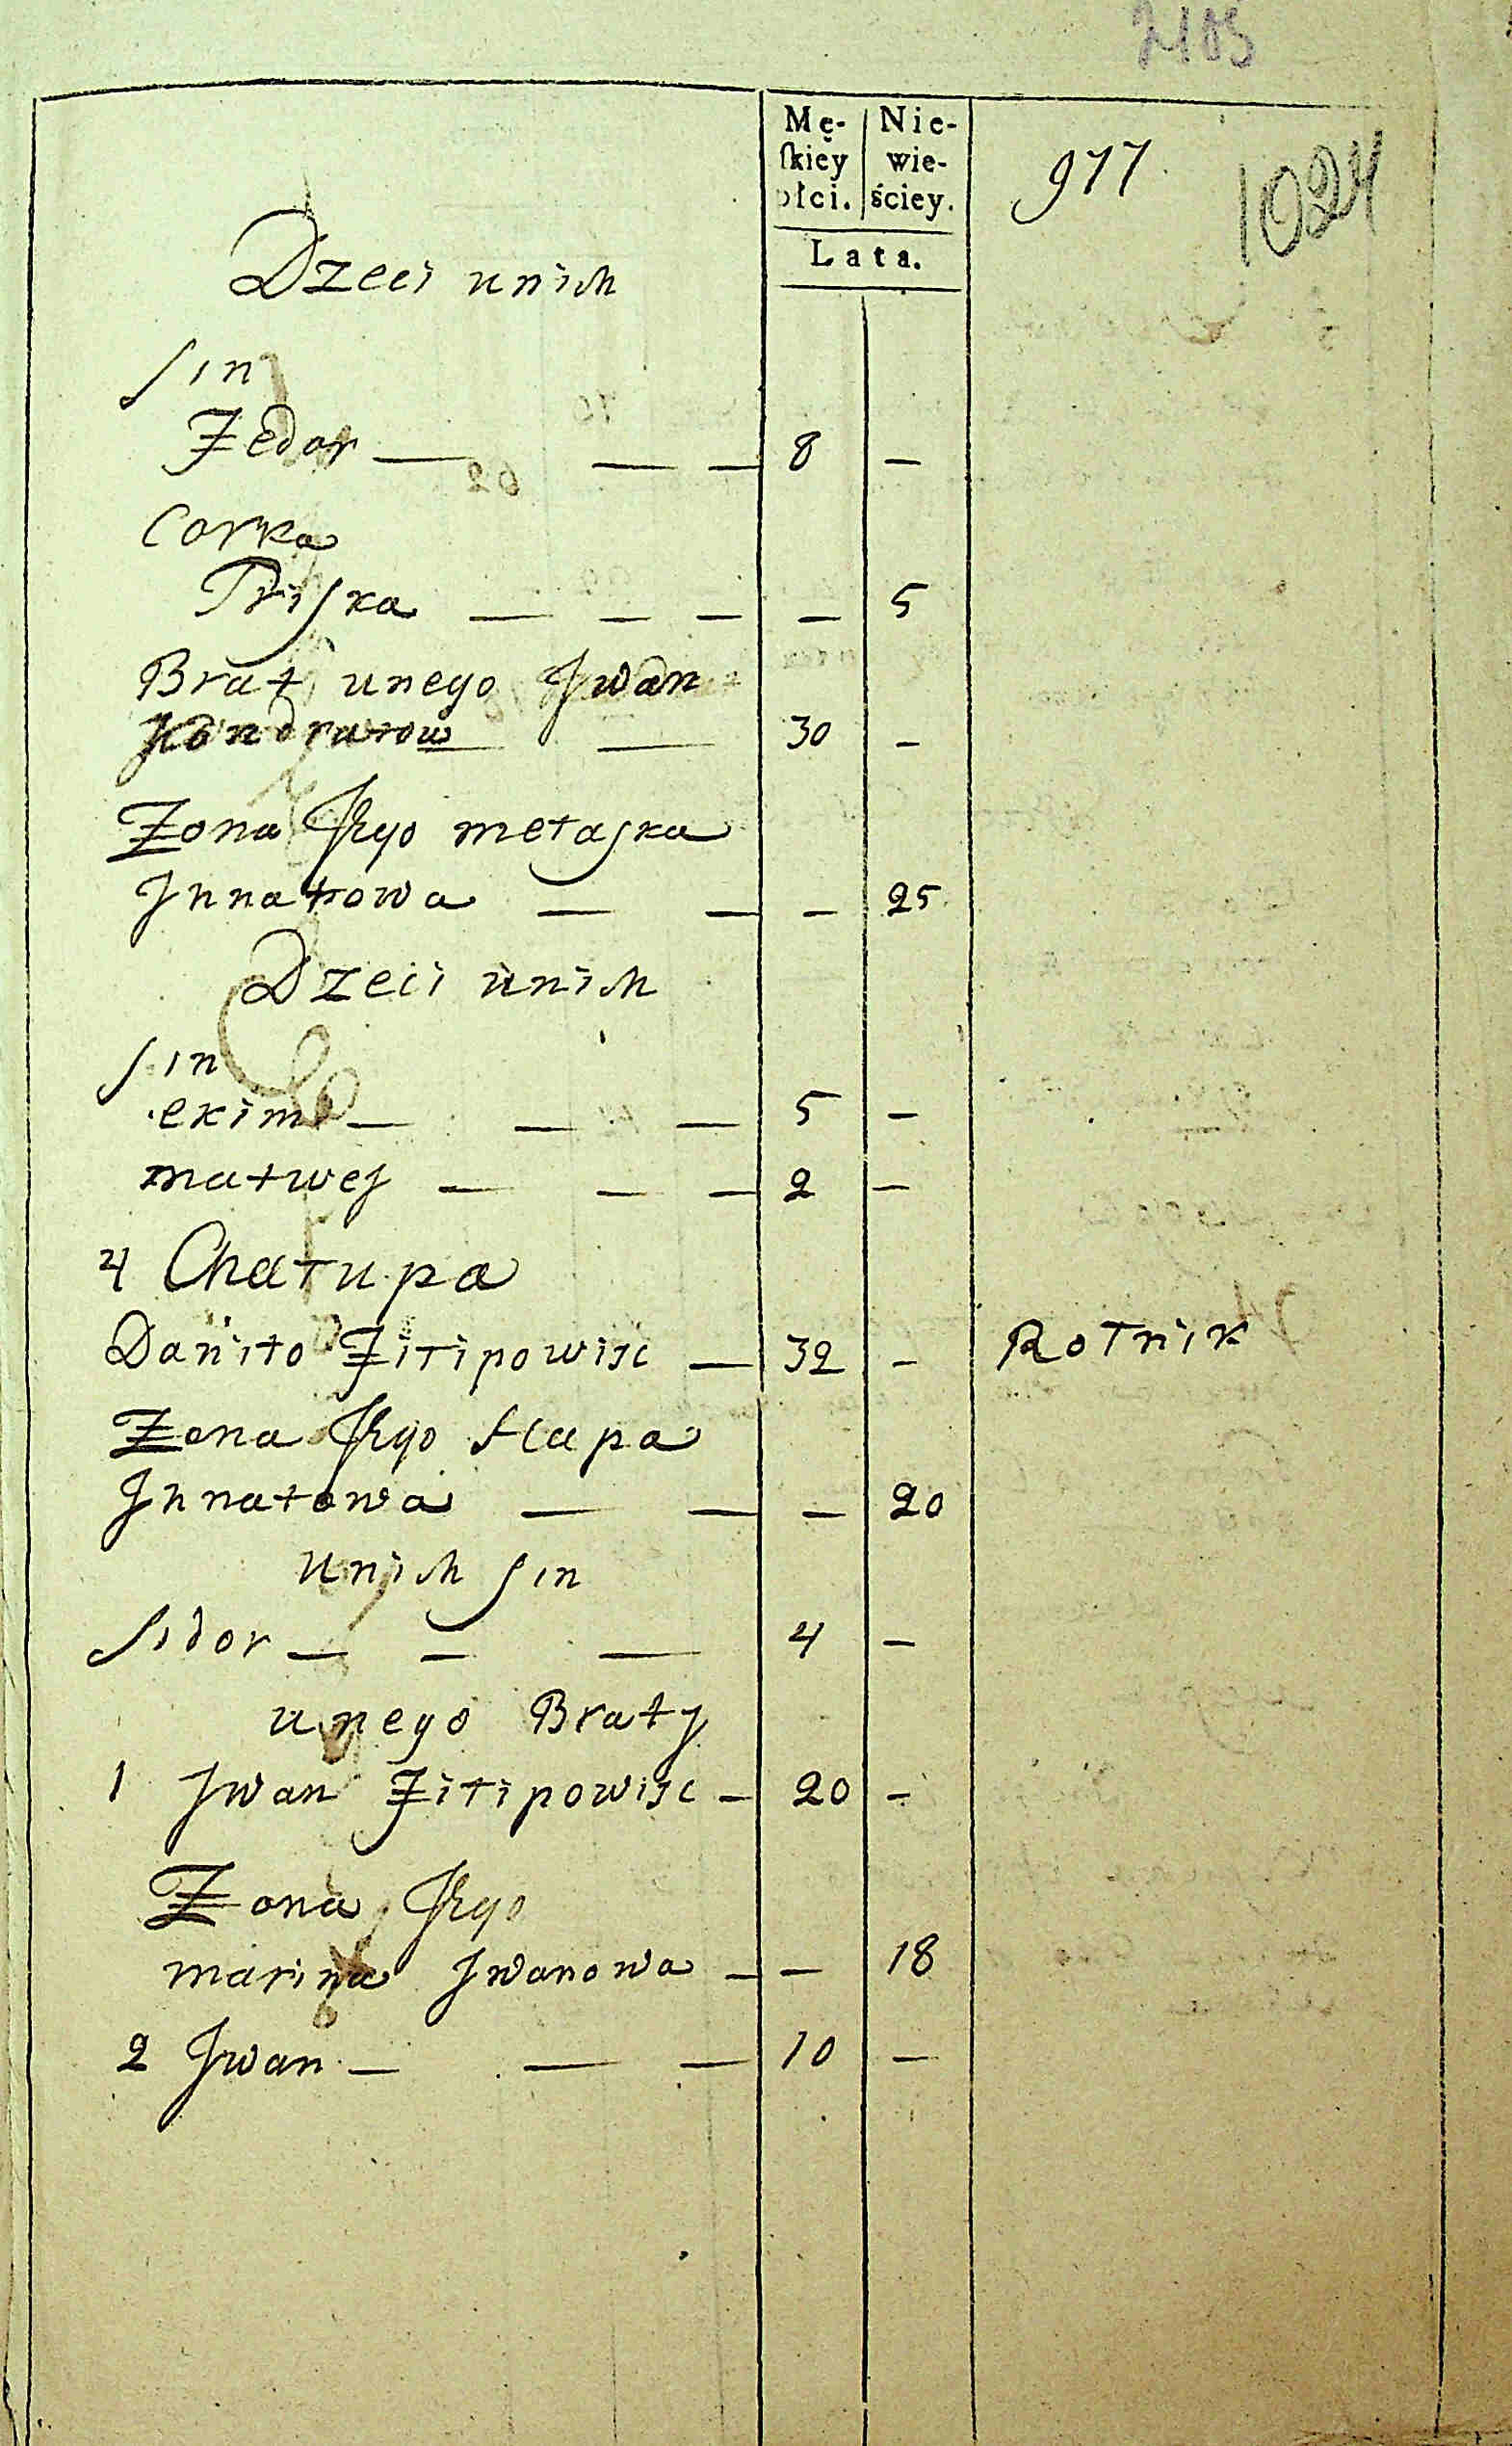 2105
Mę-
skiey
płci.
Nie-
wie-
ściey.
Lata.
977
1024
Dzeci unich
sin
Fedor — — — 8 —
Corka
Priska — — — — 5
Brat unego Jwan
Kondratow — — 30 —
Zona Jego metaska
Jhnatowa — — — 25
Dzeci unich
sin
ekim — — — 5 —
matwej — — — 2 —
4 Chałupa
Daniło Filipowisc — 32 — Rolnik
Zona Jego Hapa
Jhnatowa — — — 20
unich sin
sidor — — — 4 —
unego Braty
1 Jwan Filipowisc — 20 —
Zona Jego
marina Jwanowa — — 18
2 Jwan — — — 10 —